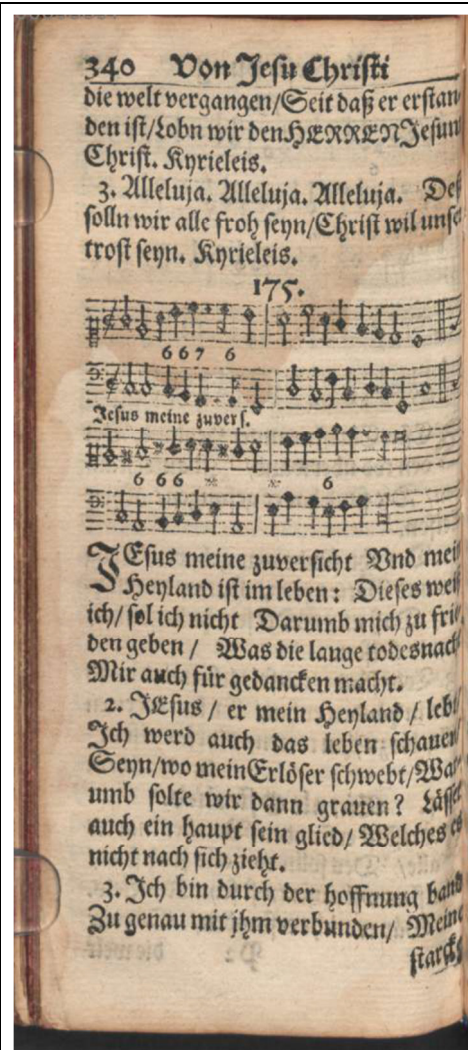 340 Von Jesu Christi
die welt vergangen/Seit daß er erstan
den ist/Lobn wir den HERREN Jesum
Christ. Kyrieleis.
3. Alleluja. Alleluja. Alleluja. Deß
solln wir alle froh seyn/Christ wil unser
trost seyn. Kyrieleis.
175.
6 6 7 6
Jesus meine zuvers.
6 6 6 6
JEsus meine zuversicht Vnd mein
Heyland ist im leben: Dieses weiß
ich/ sol ich nicht Darumb mich zu frie
den geben / Was die lange todesnacht
Mir auch für gedancken macht.
2. JEsus / er mein Heyland / lebt/
Jch werd auch das leben schauen/
Seyn/wo mein Erlöser schwebt/War
umb solte wir dann grauen? Lässet
auch ein haupt sein glied/ Welches es
nicht nach sich zieht.
3. Jch bin durch der hoffnung band
Zu genau mit jhm verbunden/ Meine
starcke